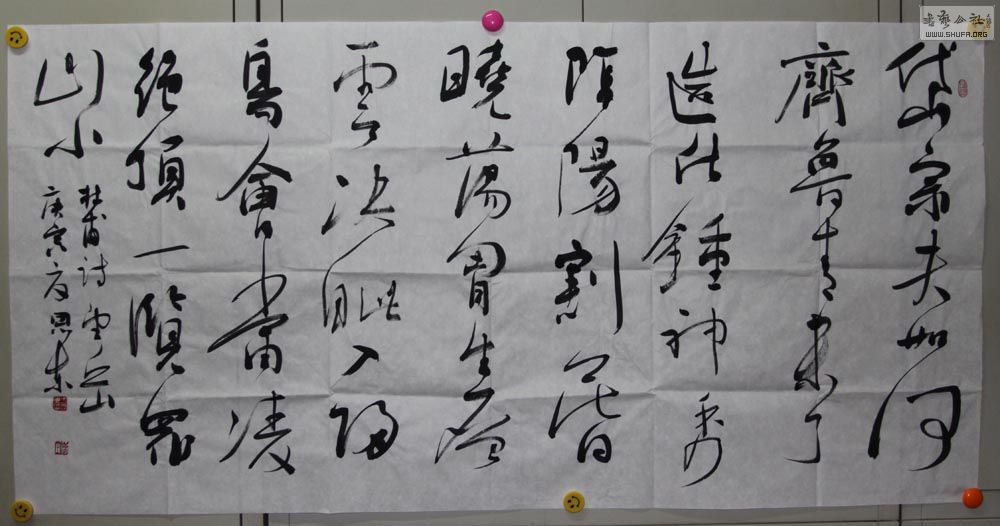 岱宗夫如何
齊魯青未了
造化鍾神秀
陰陽割昏
曉蕩胷生層
雲決眦入歸
鳥會當凌
絕頂一覽眾
山小
杜甫詩望岳
庚寅夏思東
書藝公社
WWW.SHUFA.ORG